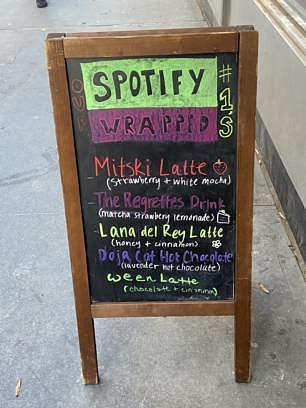 OUR
SPOTIFY
WRAPPED
#1'S
Mitski Latte
(Strawberry + white mocha)
The Regrettes Drink
(matcha strawberry lemonade)
Lana del Rey Latte
(honey + cinnamon)
Doja Cat Hot Chocolate
(lavender hot chocolate)
Ween Latte
(chocolate + cinnamon)